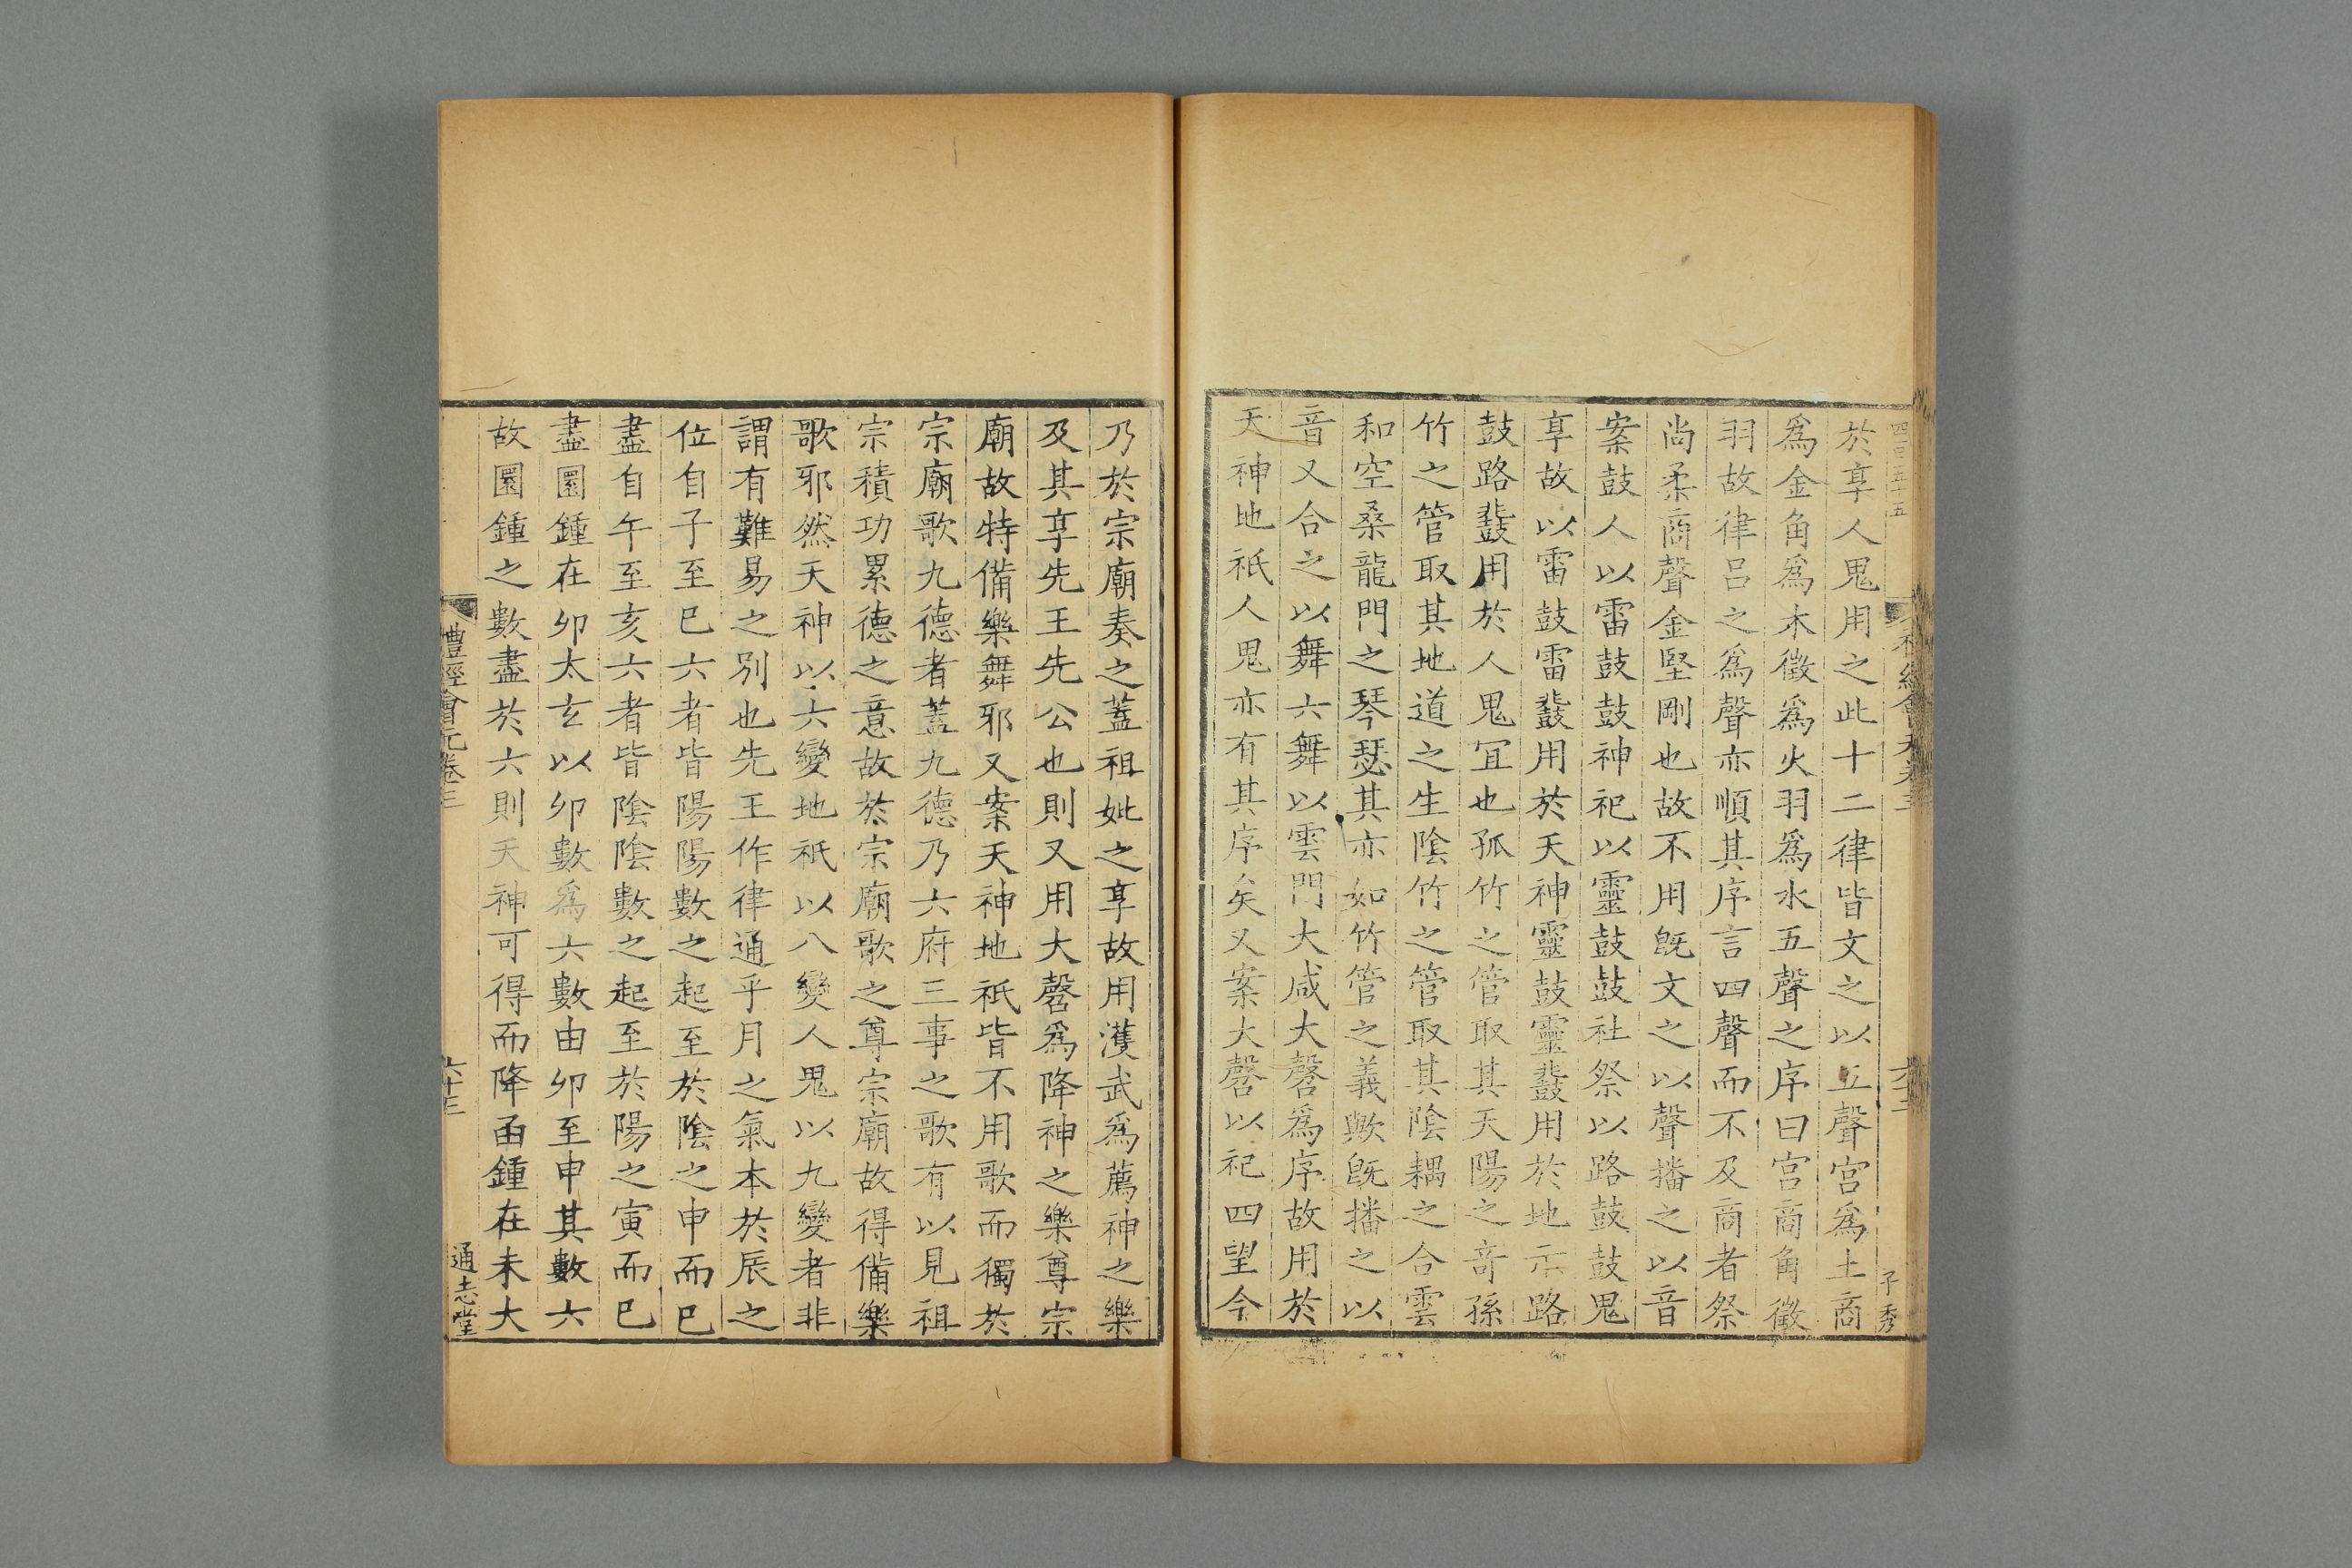 四百五十五
於享人鬼用之此十二律皆文之以五聲宫爲土商
爲金角爲木徵爲火羽爲水五聲之序曰宫商角徵
羽故律呂之爲聲亦順其序言四聲而不及商者祭
尚柔商聲金堅剛也故不用旣文之以聲播之以音
案鼓人以雷鼓鼓神祀以靈鼓鼓社祭以路鼓鼓鬼
享故以雷鼓雷鼗用於天神靈鼓靈鼗用於地示路
鼓路鼗用於人鬼冝也孤竹之管取其天陽之奇孫
竹之管取其地道之生陰竹之管取其陰耦之合雲
和空桑龍門之琴瑟其亦如竹管之義歟旣播之以
音又合之以舞六舞以雲門大咸大磬爲序故用於
天神地祇人鬼亦有其序矣又案大磬以祀四望今
子秀
乃於宗廟奏之蓋祖妣之享故用濩武爲薦神之樂
及其享先王先公也則又用大磬爲降神之樂尊宗
廟故特備樂舞邪又案天神地祇皆不用歌而獨於
宗廟歌九德者蓋九德乃六府三事之歌有以見祖
宗積功累德之意故於宗廟歌之尊宗廟故得備樂
歌邪然天神以六變地祇以八變人鬼以九變者非
謂有難易之別也先王作律通乎月之氣本於辰之
位自子至巳六者皆陽陽數之起至於陰之申而巳
盡自午至亥六者皆陰陰數之起至於陽之寅而巳
盡圜鍾在卯太玄以卯數爲六數由卯至申其數六
故圜鍾之數盡於六則天神可得而降函鍾在未大
禮經會元卷三
六十三
通志堂